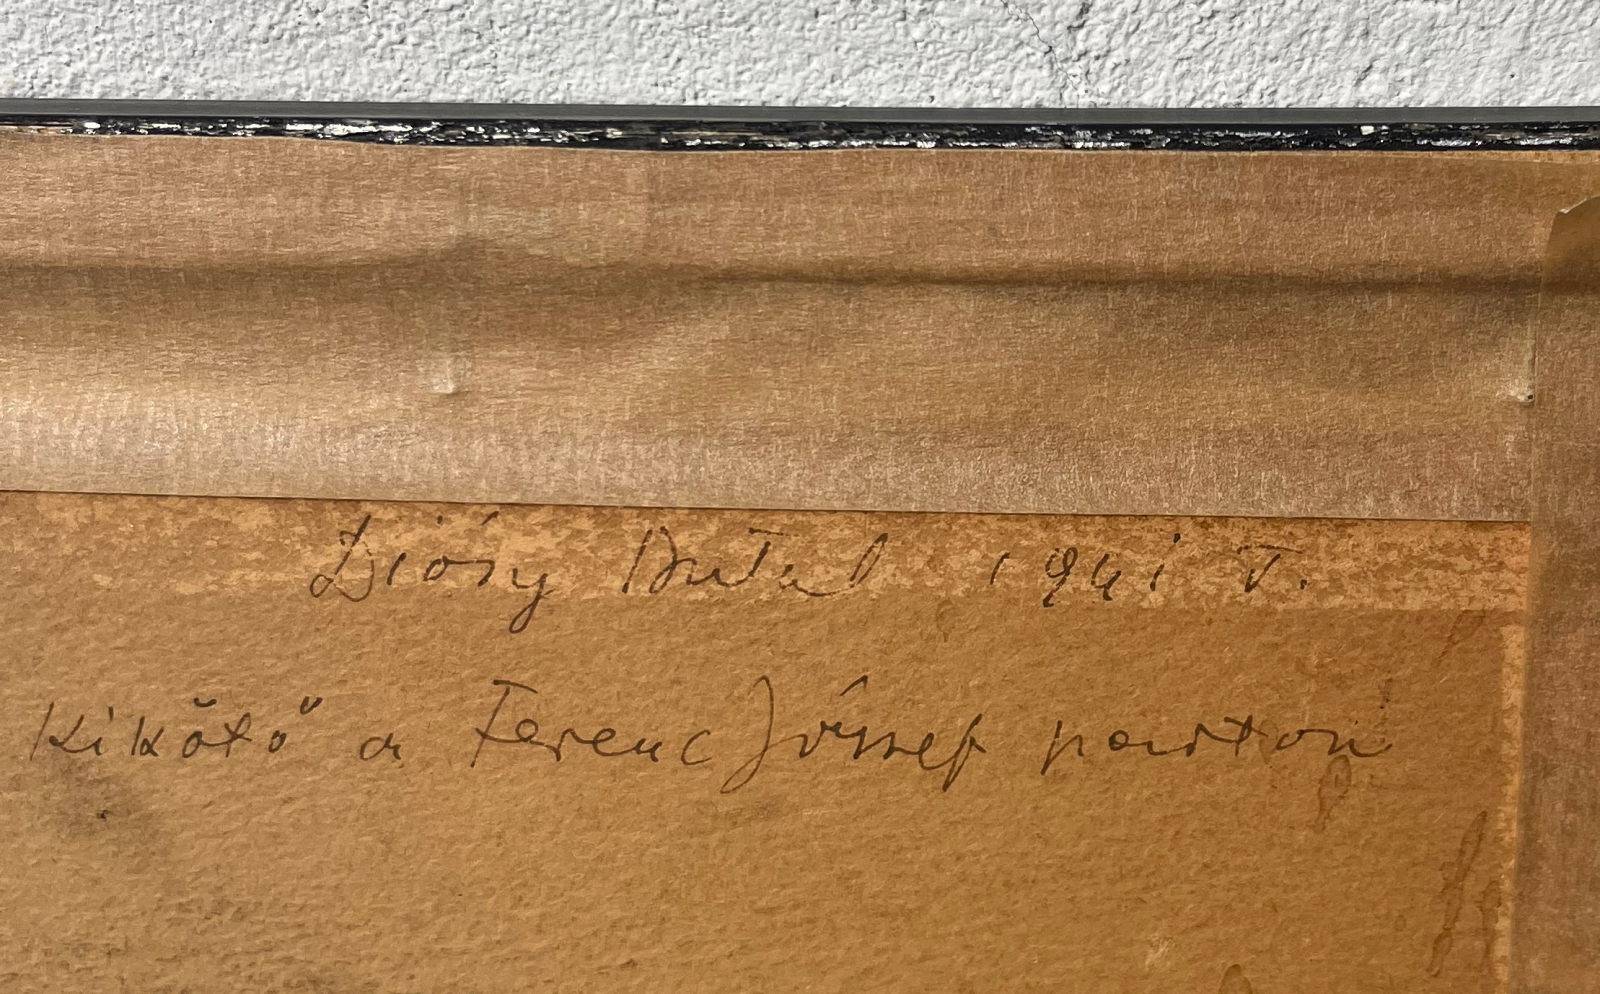 Diósy Antal 1941 T.
Kikötő a Ferenc József parton